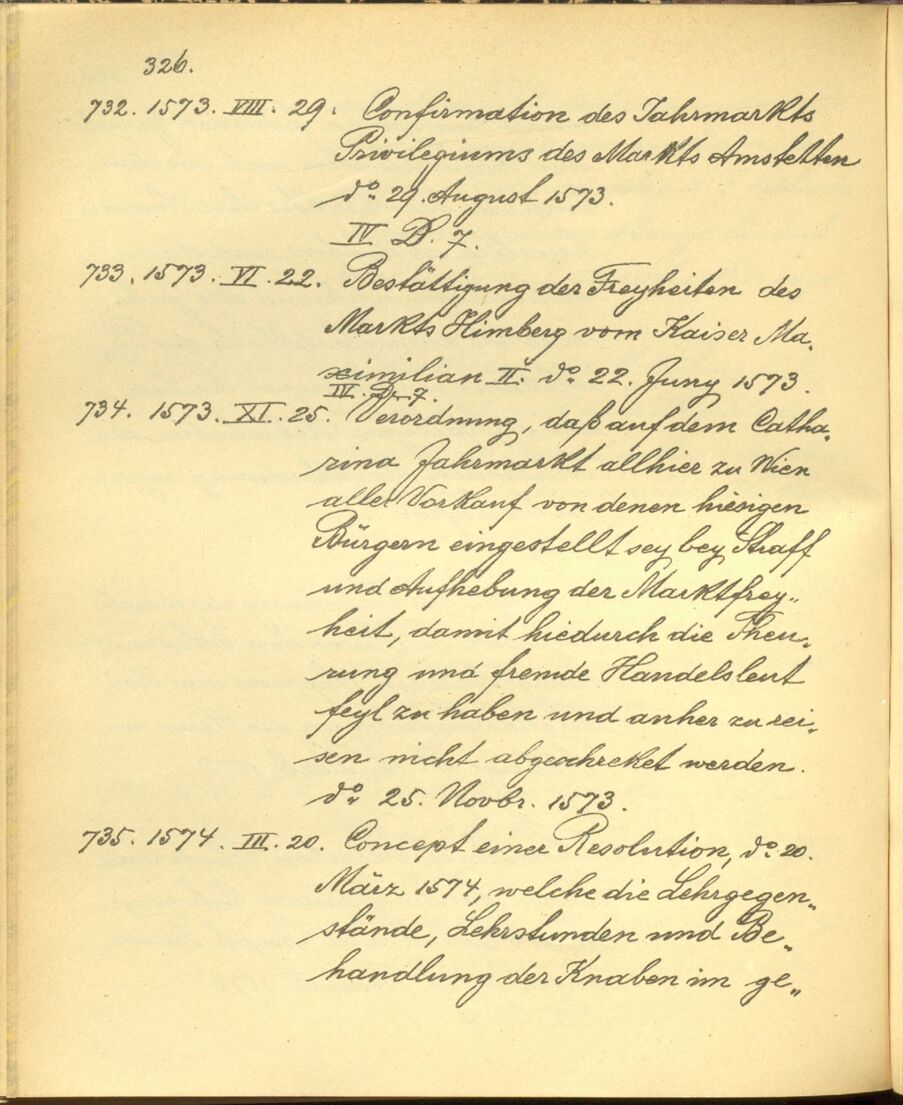 326.
732. 1573. VIII. 29. Confirmation des Jahrmarkts
Privilegiums des Markts Amstetten
do. 29. August 1573.
IV D. 7.
733. 1573. VI. 22. Bestättigung der Freyheiten des
Markts Himberg vom Kaiser Ma„
ximilian II. do. 22. Juny 1573.
IV. D. 7.
734. 1573. XI. 25. Verordnung, daß auf dem Catha„
rina Jahrmarkt allhier zu Wien
aller Vorkauf von denen hiesigen
Bürgern eingestellt sey bey Straff
und Aufhebung der Marktfrey„
heit, damit hiedurch die Theu„
rung und fremde Handelsleut
feyl zu haben und anher zu rei„
sen nicht abgeschreket werden.
do. 25. Novbr. 1573.
735. 1574. III. 20. Concept einer Resolution, do. 20.
März 1574, welche die Lehrgegen„
stände, Lehrstunden und Be„
handlung der Knaben im ge„